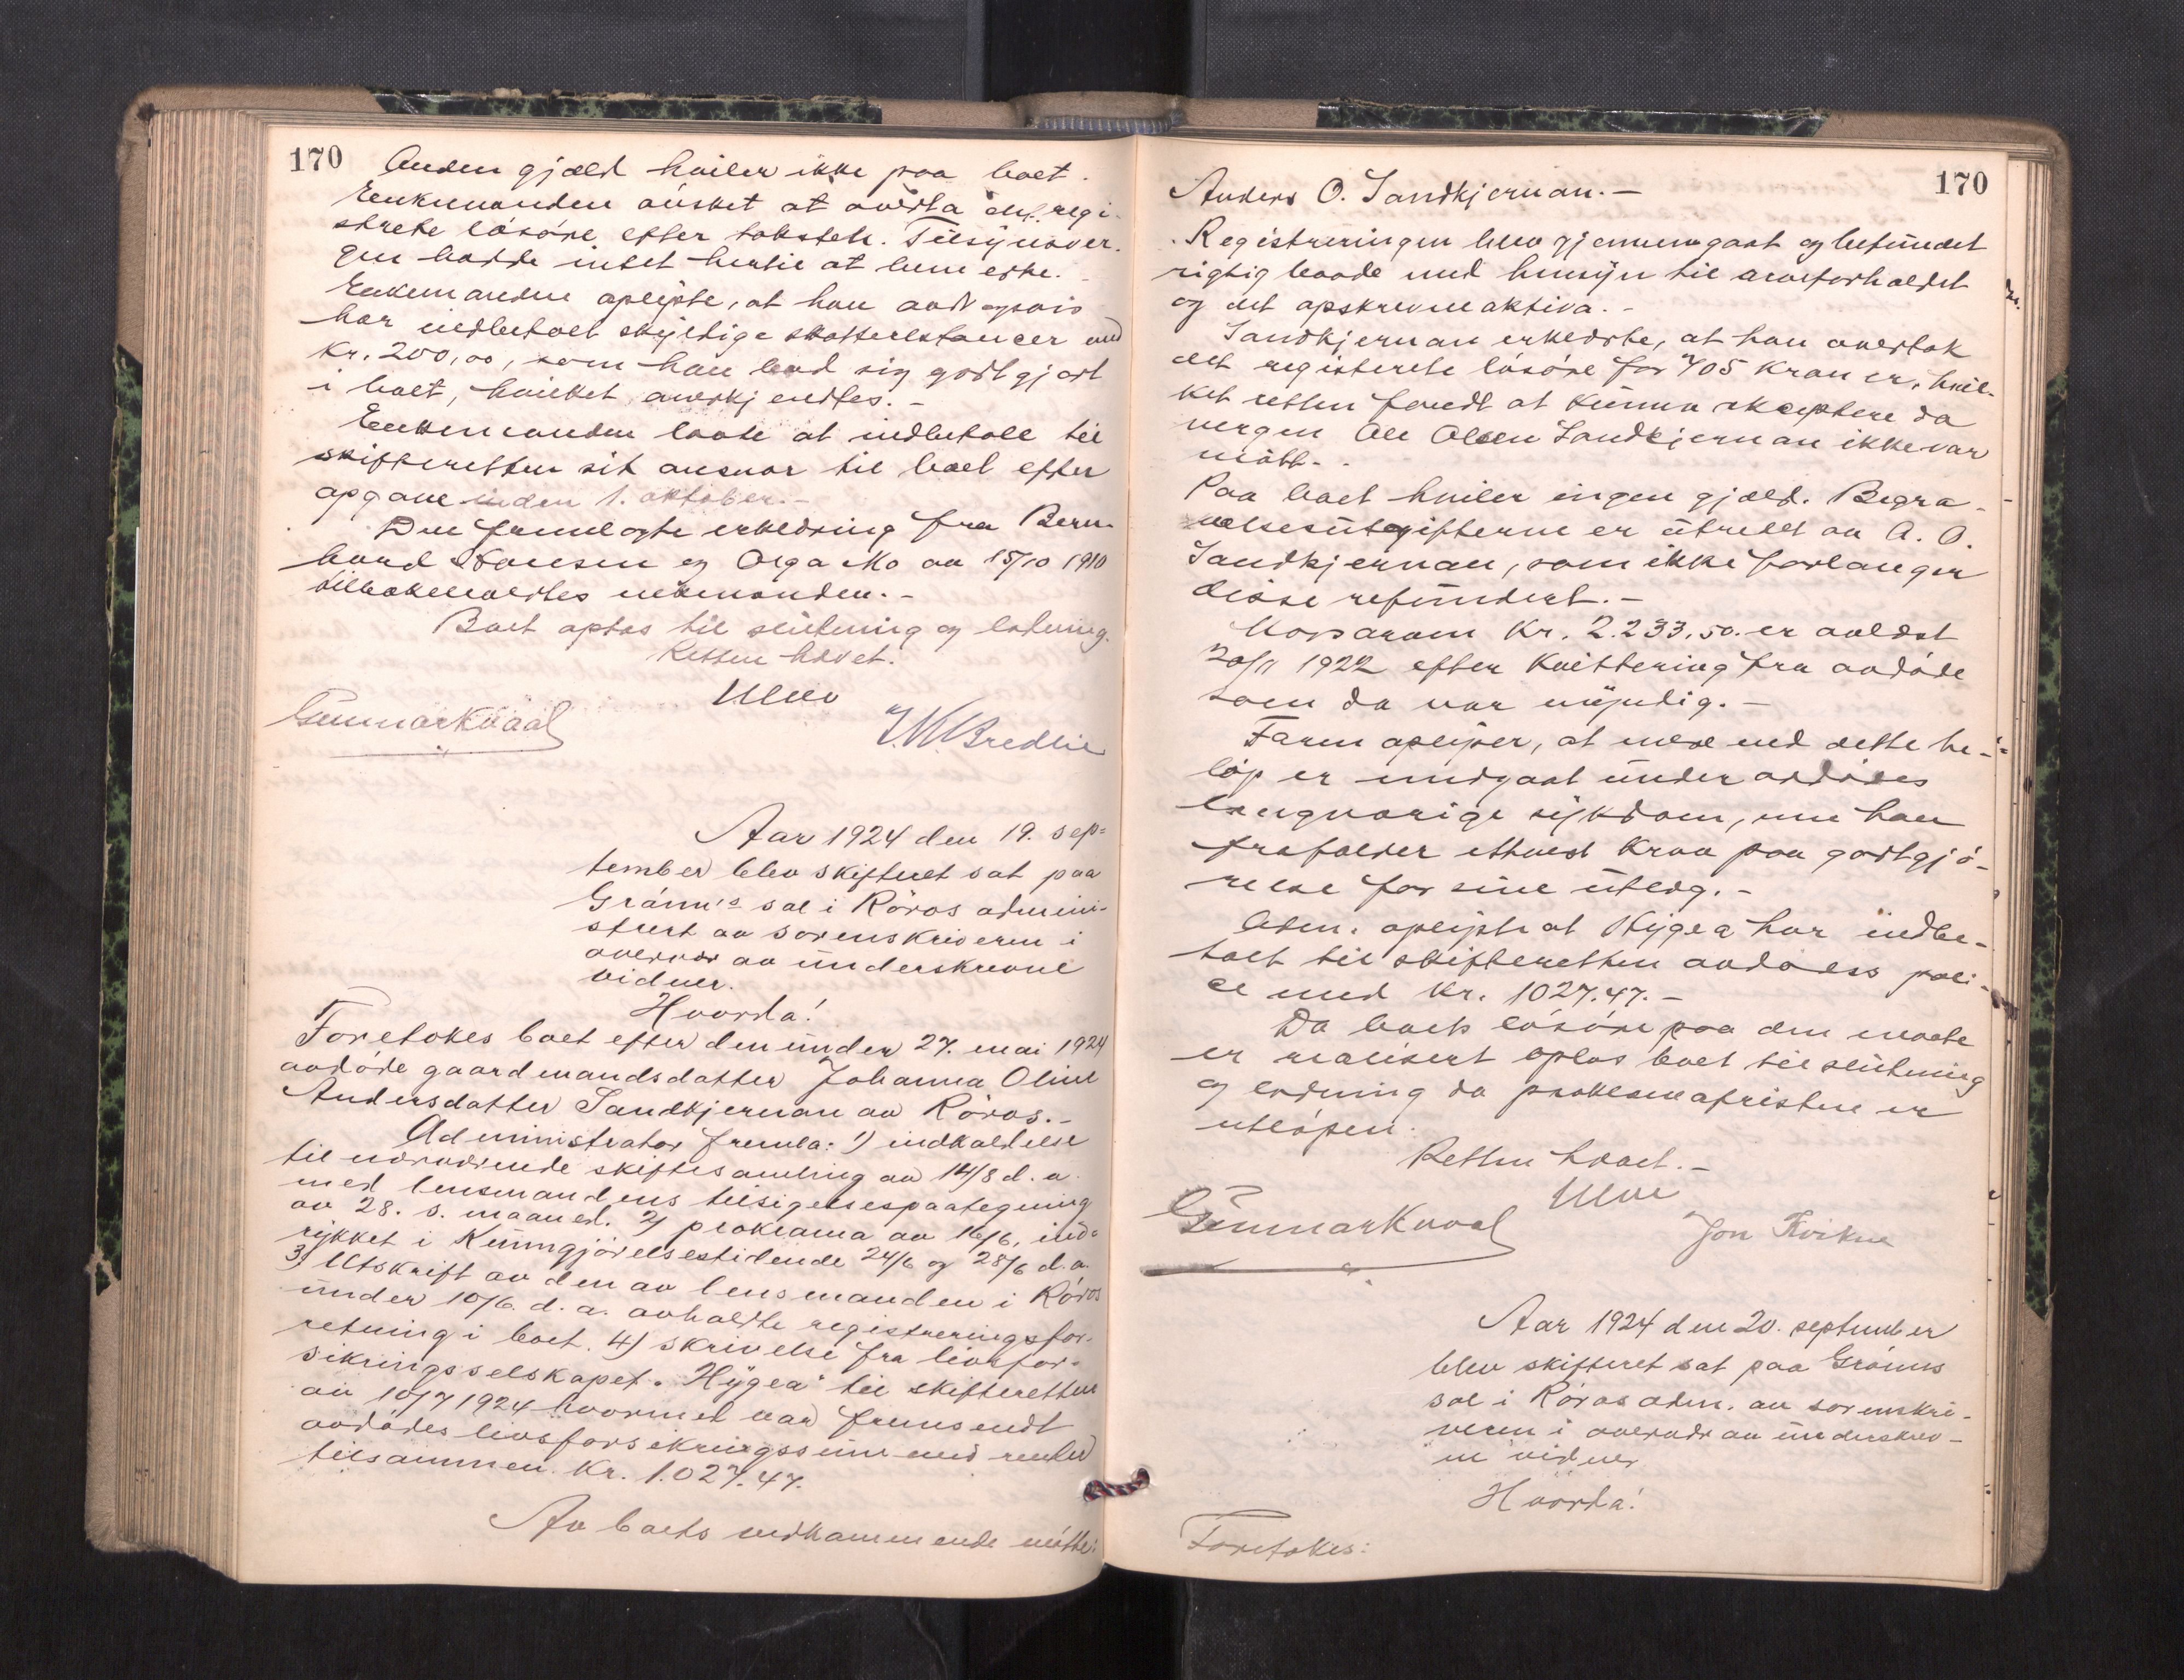 170
Anden gjæld hviler ikke paa boet.
Enkemanden önsket at overta det regi-
strerte lösöre efter taksten. Tilsynsver-
gen hadde intet hertil at bemerke.
Enkemanden oplyste, at han
har indbetalt skyldige skatterestancer med
Kr. 200,00, som han bad sig godtgjort
i boet, hvilket anerkjendtes. -
Enkemanden lovte at indbetale til
skifteretten sit ansvar til boet efter
opgave inden 1. oktober. -
Den fremlagte erklæring fra Bern-
hard Hansen og Olga Mo av 15/10 1910
tilbakeleveredes enkemanden. -
Boet optas til slutning og lodning.
Retten hævet.
Ulve
Gunnar Kvaal
J. K. Bredlie
Aar 1924 den 19. sep=
tember blev skifteret sat paa
Gramm's sal i Röros admini-
strert av sorenskriveren i
overvær av underskrevne
vidner.
Hvorda!
Foretokes boet efter den under 27. mai 1924
avdöde gaardmandsdatter Johanna Oline
Andersdatter Sandkjernan av Röros. -
Administrator fremla: 1) indkaldelse
til nærværende skiftesamling av 14/8 d. a.
med lensmandens tilsigelsespaategning
av 28. s. maaned. 2) proklama av 16/6, ind-
rykket i Kunngjörelsestidende 24/6 og 28/6 d. a.
3) Utskrift av den av lensmanden i Röros
under 10/6. d. a. avholdte registreringsfor-
retning i boet. 4) skrivelse fra livsfor-
sikringsselskapet "Hygea" til skifteretten
av 10/7 1924 hvormed var fremsendt
avdödes livsforsikringssum med renter
tilsammen Kr. 1.027.47.
Av boets vedkommende mötte:
170
Anders O. Sandkjernan. -
Registreringen blev gjennemgaat og befundet
rigtig baade med hensyn til arveforholdet
og det opskrevne aktiva. -
Sandkjernan erklærte, at han overtok
det registrerte lösöre for 405 Kroner, hvil-
ket retten fandt at kunne akceptere da
vergen Ole Olsen Sandkjernan ikke var
mött. -
Paa boet hviler ingen gjæld. Begra-
velsesutgifterne er utredet av A. O.
Sandkjernan, som ikke forlanger
disse refundert. -
Morsarven Kr. 2.233.50. er avlöst
20/11 1922 efter Kvittering fra avdöde
som da var myndig. -
Faren oplyser, at mere end dette be-
löp er medgaat under avdödes
langvarige sykdom, men han
frafalder ethvert krav paa godtgjö-
relse for sine utlæg. -
Adm. oplyste at Hygea har indbe-
talt til skifteretten avdödes poli-
ce med Kr. 1027.47. -
Da boets lösöre paa den maate
er realisert optas boet til slutning
og lodning da proklamafristen er
utlöpen.
Retten hævet. -
Ulve
Gunnar Kvaal
Jon Kvikne
Aar 1924 den 20. september
blev skifteret sat paa Gramms
sal i Röros adm. av sorenskri-
veren i overvær av underskrev-
ne vidner
Hvorda!
Foretokes: